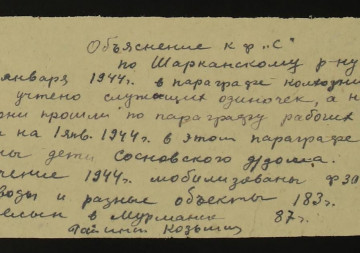 Объяснение к ф „С"
по Шарканскому р-ну
января 1944г. в параграфе
учтено служащих одиночек, а н
они прошли по параграфу рабочих
и на 1 янв. 1944г. в этом параграфе
ны дети Сосновского д/дома.
чение 1944г. мобилизованы ф ЗО
воды и разные объекты 183 г.
в Мурманск 87 г.